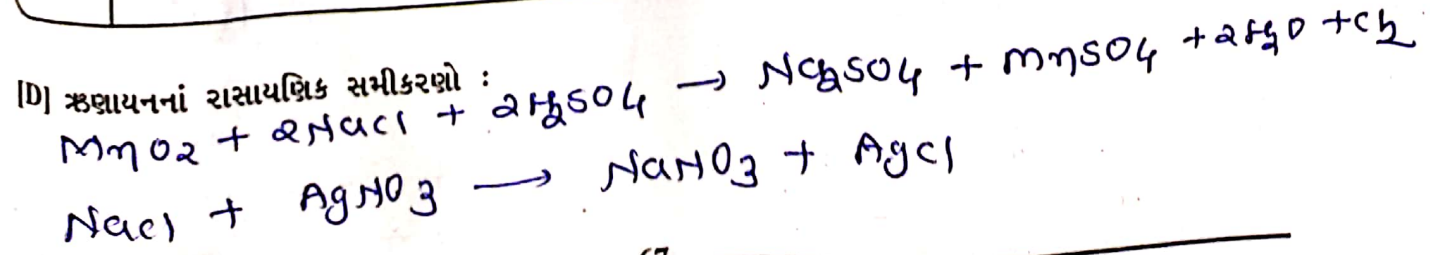 [D] ઋણાયનનાં રાસાયણિક સમીકરણો :
MnO2 + 2NaCl + 2H2SO4 → Na2SO4 + MnSO4 + 2H2O + Cl2
NaCl + AgNO3 → NaNO3 + AgCl